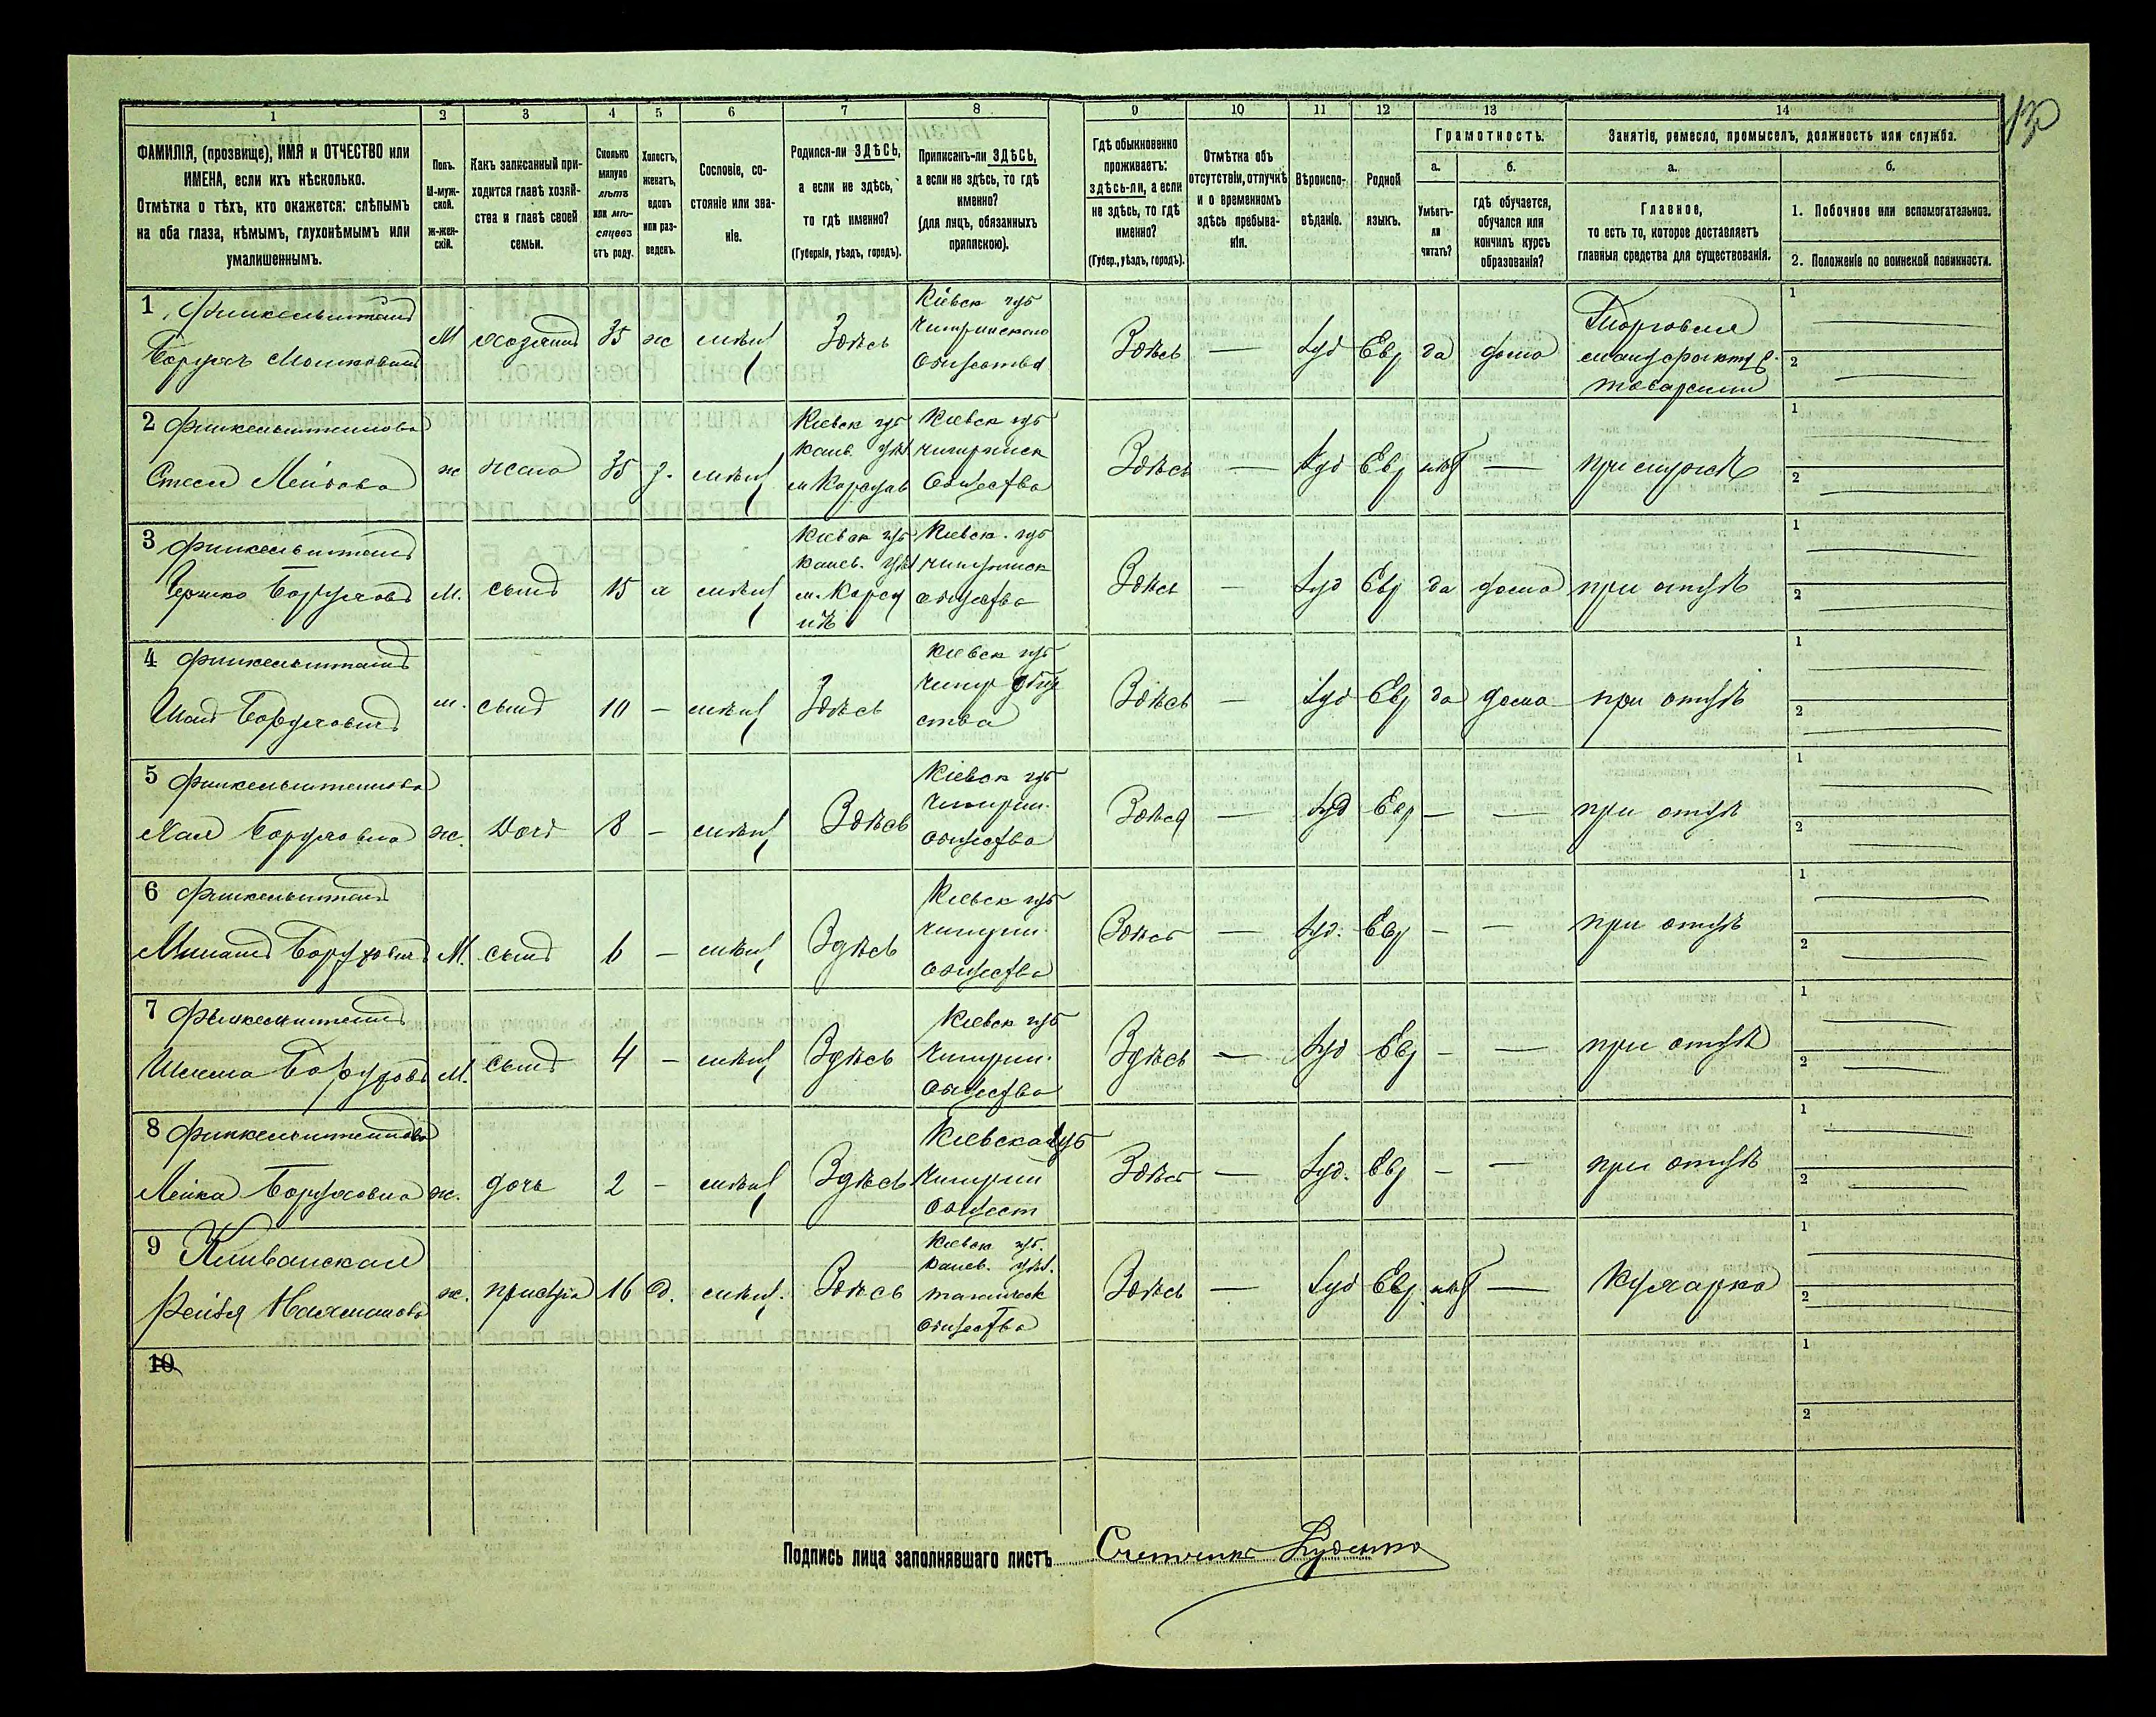 130
1 2 3 4 5 6 7 8 9 10 11 12 13 14
ФАМИЛІЯ, (прозвище), ИМЯ и ОТЧЕСТВО или
ИМЕНА, если ихъ нѣсколько.
Отмѣтка о тѣхъ, кто окажется: слѣпымъ
на оба глаза, нѣмымъ, глухонѣмымъ или
умалишеннымъ.
Полъ.
М-муж-
ской.
Ж-жен-
скій.
Какъ записанный при-
ходится главѣ хозяй-
ства и главѣ своей
семьи.
Сколько
минуло
лѣтъ
или мѣ-
сяцевъ
отъ роду.
Холостъ,
женатъ,
вдовъ
или раз-
веденъ.
Сословіе, со-
стояніе или зва-
ніе.
Родился-ли ЗДѢСЬ,
а если не здѣсь,
то гдѣ именно?
(Губернія, уѣздъ, городъ).
Приписанъ-ли ЗДѢСЬ,
а если не здѣсь, то гдѣ
именно?
(для лицъ, обязанныхъ
припискою).
Гдѣ обыкновенно
проживаетъ:
здѣсь-ли, а если
не здѣсь, то гдѣ
именно?
(Губер., уѣздъ, городъ).
Отмѣтка объ
отсутствіи, отлучкѣ
и о временномъ
здѣсь пребыва-
ніи.
Вѣроиспо-
вѣданіе.
Родной
языкъ.
Грамотность.
а.
Умѣетъ-
ли
читать?
б.
гдѣ обучается,
обучался или
кончилъ курсъ
образованія?
Занятіе, ремесло, промыселъ, должность или служба.
а.
Главное,
то есть то, которое доставляетъ
главныя средства для существованія.
б.
1. Побочное или вспомогательное.
2. Положеніе по воинской повинности.
1 Финкельштейнъ
Борухъ Мошковичъ
М хозяинъ 35 ж мѣщ Здѣсь
Кіевск губ
Чигиринскаго
общества
Здѣсь — Іуд Евр да дома
Торговля
мануфакту
товарами
1
2
2 Финкельштейнова
жена 35 з. мѣщ
Кіевск губ
Канев. уѣз
м Корсунь
Кіевск губ
чигиринск
общества
Здѣсь — Іуд Евр нѣт — при мужѣ
1
2
3 Финкельштейнъ
Гершко Боруховъ
М. сынъ 15 х мѣщ
Кіевск губ
Канев. уѣз
м. Корсу
нѣ
Кіевск. губ
чигиринск
общества
Здѣсь — Іуд Евр да дома при отцѣ
1
2
4 Финкельштейнъ
Боруховичъ
м. сынъ 10 — мѣщ Здѣсь
Кіевск губ
Чигир обще
ства
Здѣсь — Іуд Евр да дома при отцѣ
1
2
5 Финкельштейнова
Хая Боруховна
ж. дочь 8 — мѣщ Здѣсь
Кіевск губ
Чигирин.
общества
Здѣсь — Іуд Евр — — при отцѣ
1
2
6 Финкельштейнъ
Боруховичъ
М. сынъ 6 — мѣщ Здѣсь
Кіевск губ
чигирин.
общества
Здѣсь — Іуд. Евр — — при отцѣ
1
2
7 Финкельштейнъ
Шлема Боруховъ
М. сынъ 4 — мѣщ Здѣсь
Кіевск губ
Чигирин.
общества
Здѣсь — Іуд Евр — — при отцѣ
1
2
8 Финкельштейнова
Лейка Боруховна
ж. дочь 2 — мѣщ Здѣсь
Кіевская губ
Чигирин
общест
Здѣсь — Іуд. Евр — — при отцѣ
1
2
9
ж. 16 мѣщ. Здѣсь
Кіевск губ.
Канев. уѣз.
общества
Здѣсь — Іуд Евр нѣт — Кухарка
1
2
10
1
2
Подпись лица заполнявшаго листъ